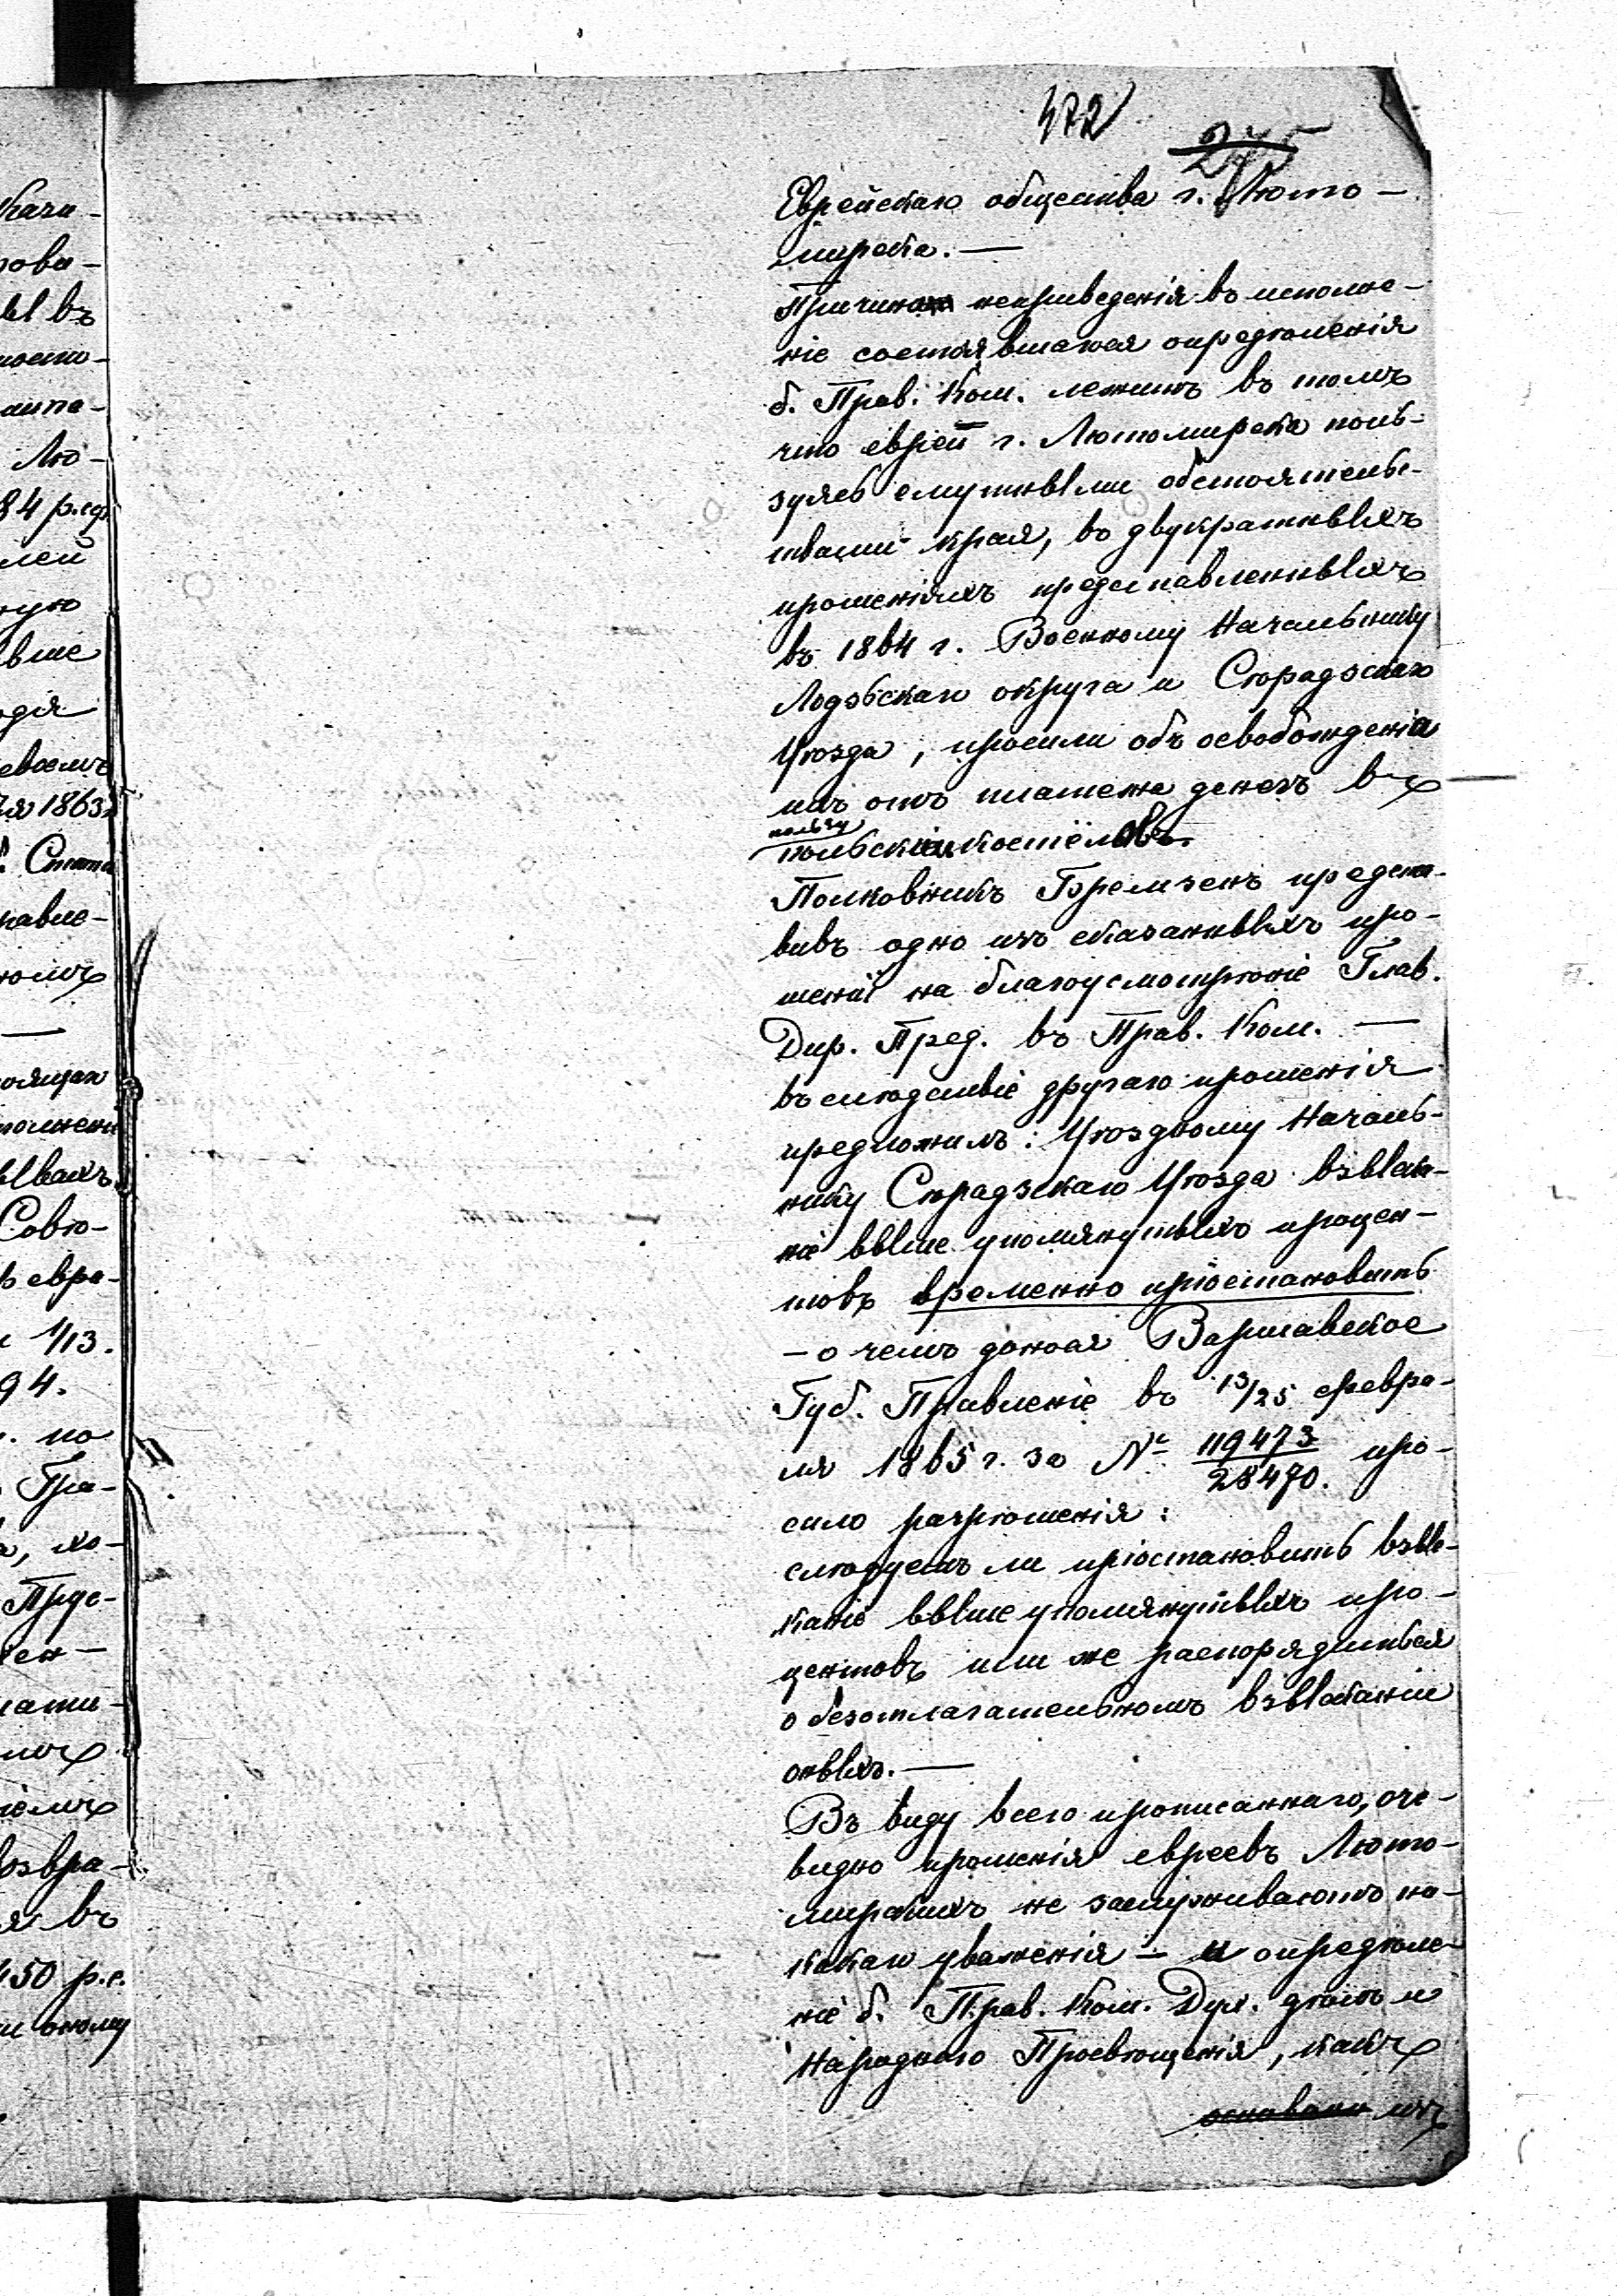 472
275
Еврейскаго общества г. Люто-
мирска. —
Причина неприведенія въ исполне-
ніе состоявшагося опредѣленія
б. Прав. Ком. лежитъ въ томъ
что евреи г. Лютомирска поль-
зуясь смутными обстоятельс-
твами края, въ двукратныхъ
прошеніяхъ представленныхъ
въ 1864 г. Военному Начальнику
Лодзьскаго округа и Сѣрадзскаго
Уѣзда, просили объ освобожденіи
ихъ отъ платежа денегъ въ
пользу
польскихъ костёловъ.
Полковникъ Бремзенъ предста-
вивъ одно изъ сказанныхъ про-
шеній на благоусмотрѣніе Глав.
Дир. Пред. въ Прав. Ком. —
въ слѣдствіе другаго прошенія
предложилъ: Уѣздному Началь-
нику Сѣрадзскаго Уѣзда взыска-
ніе выше упомянутыхъ процен-
товъ временно пріостановить
— о чемъ донося Варшавское
Губ. Правленіе въ 13/25 февра-
ля 1865 г. за № 119473/28470. про-
сило разрѣшенія:
слѣдуетъ ли пріостановить взыс-
каніе выше упомянутыхъ про-
центовъ или же распорядиться
о безотлагательномъ взысканіи
оныхъ. —
Въ виду всего прописаннаго, оче-
видно прошенія евреевъ Люто-
мирскихъ не заслуживаютъ ни-
какаго уваженія — и опредѣле-
ніе б. Прав. Ком. Дух. дѣлъ и
Народнаго Просвѣщенія, какъ
основано изъ